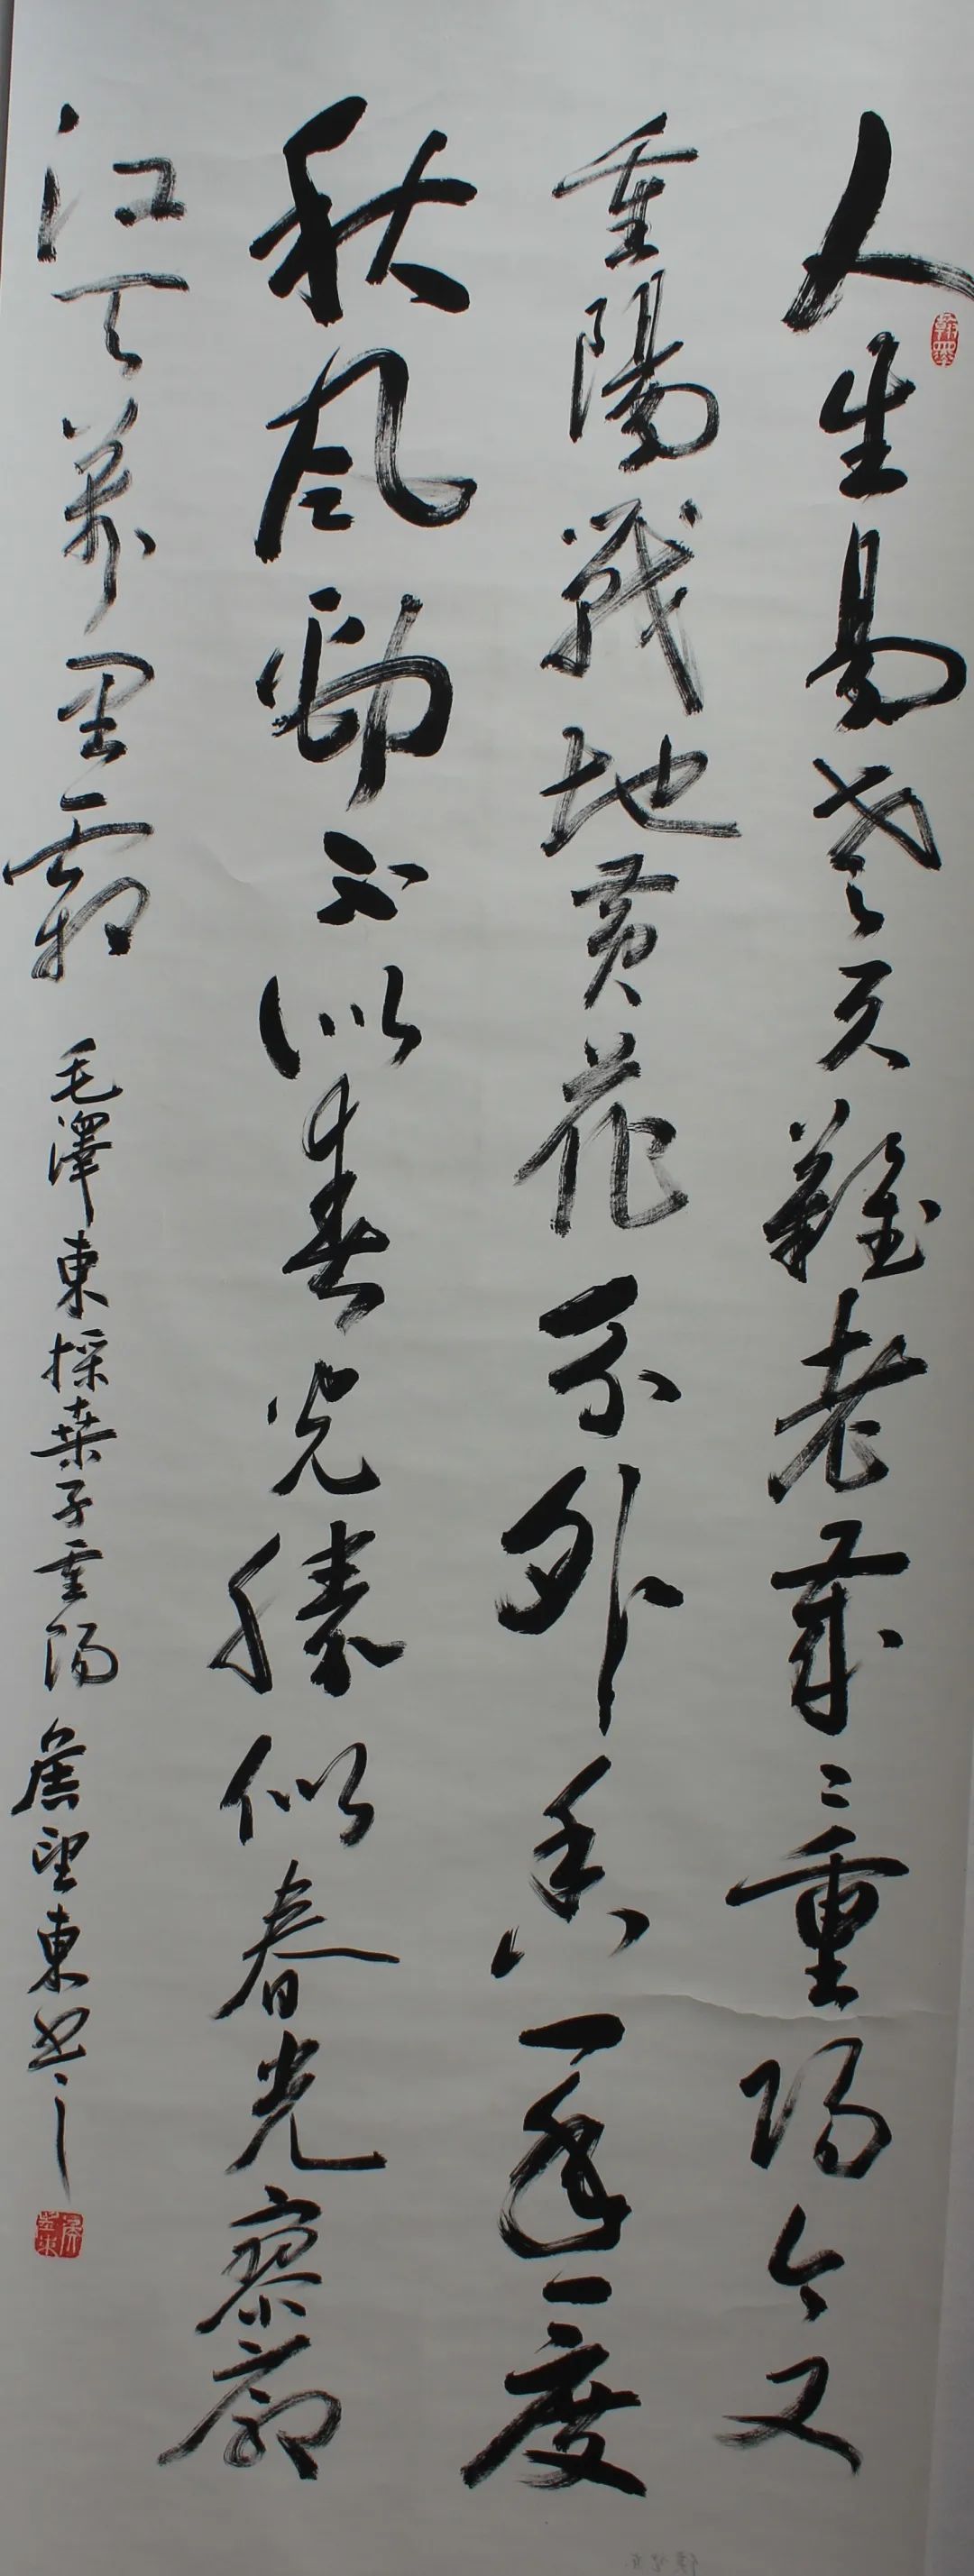 人生易老天難老歲々重陽今又
重陽戰地黃花分外香一年一度
秋風勁不似春光勝似春光寥廓
江天萬里霜 毛澤東採桑子重陽 詹望東書